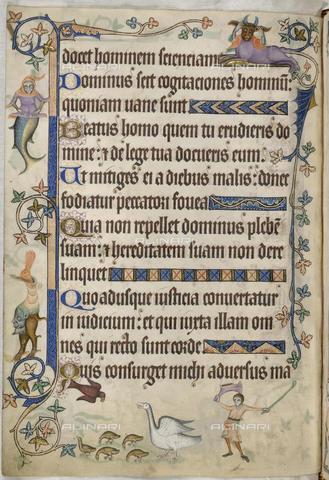 docet hominem scienciam
Dominus scit cogitaciones hominū:
quoniam uane sunt
Beatus homo quem tu erudieris do
mine: ⁊ de lege tua docueris eum.
Ut mitiges ei a diebus malis: donec
fodiatur peccatori fouea
Quia non repellet dominus plebē
suam: ⁊ hereditatem suam non dere
linquet
Quo adusque iusticia conuertatur
in iudicium: et qui iuxta illam om
nes qui recto sunt corde
Quis consurget michi aduersus ma
ALINARI
ALINARI